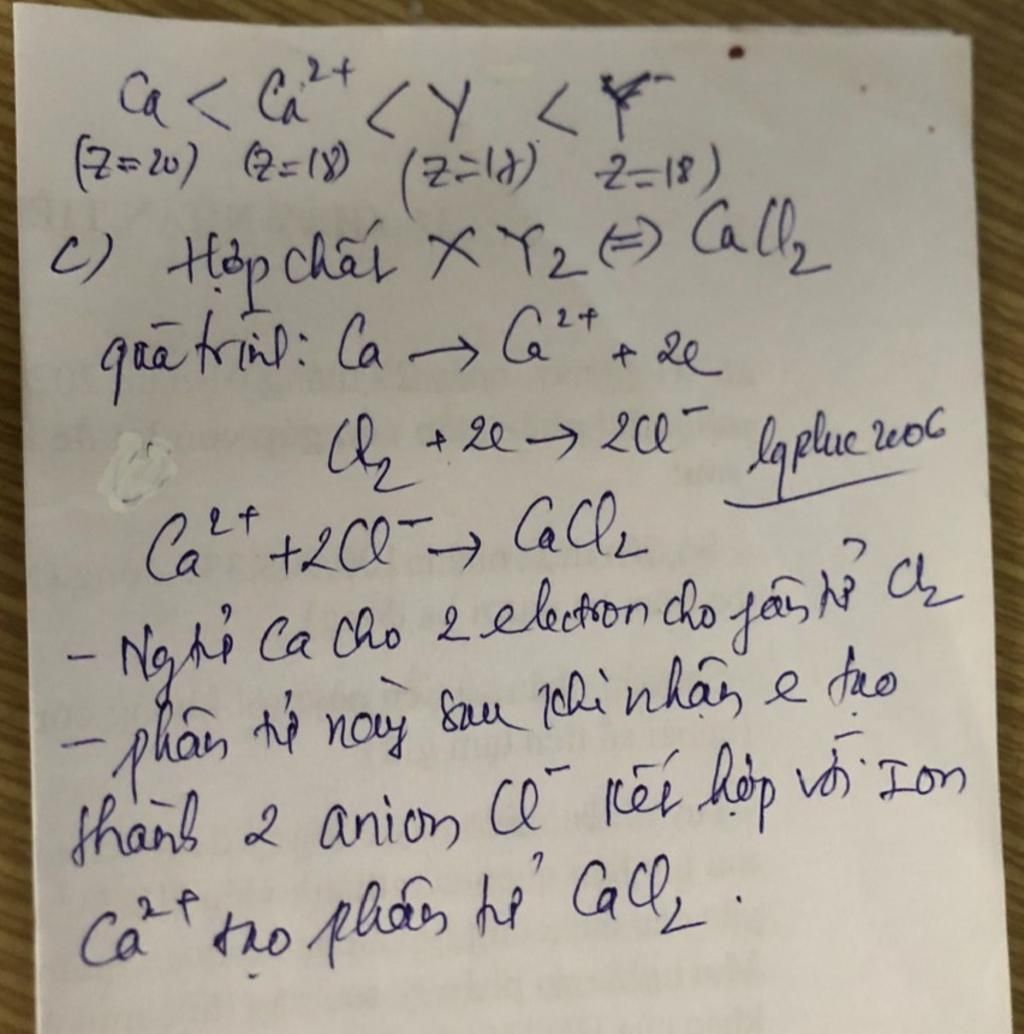 Ca < Ca²⁺ < Y < Y⁻
(Z=20) (Z=18) (Z=17) Z=18)
c) Hợp chất XY₂ ⇔ CaCl₂
quá trình: Ca → Ca²⁺ + 2e
Cl₂ + 2e → 2Cl⁻ lgphuc2006
Ca²⁺ + 2Cl⁻ → CaCl₂
- Ngtử Ca cho 2 electron cho phân tử Cl₂
- phân tử này sau khi nhận e tạo
thành 2 anion Cl⁻ kết hợp với Ion
Ca²⁺ tạo phân tử CaCl₂.